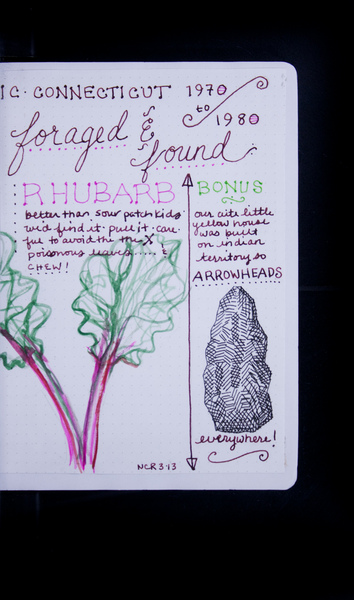 IC · CONNECTICUT 1970
to
1980
foraged &
found
RHUBARB
better than sour patch kids
we'd find it · pull it · care
ful to avoid the
poisonous leaves ..... &
CHEW!
BONUS
our cite little
yellow house
was built
on indian
territory so
ARROWHEADS
everywhere!
NCR 3·13